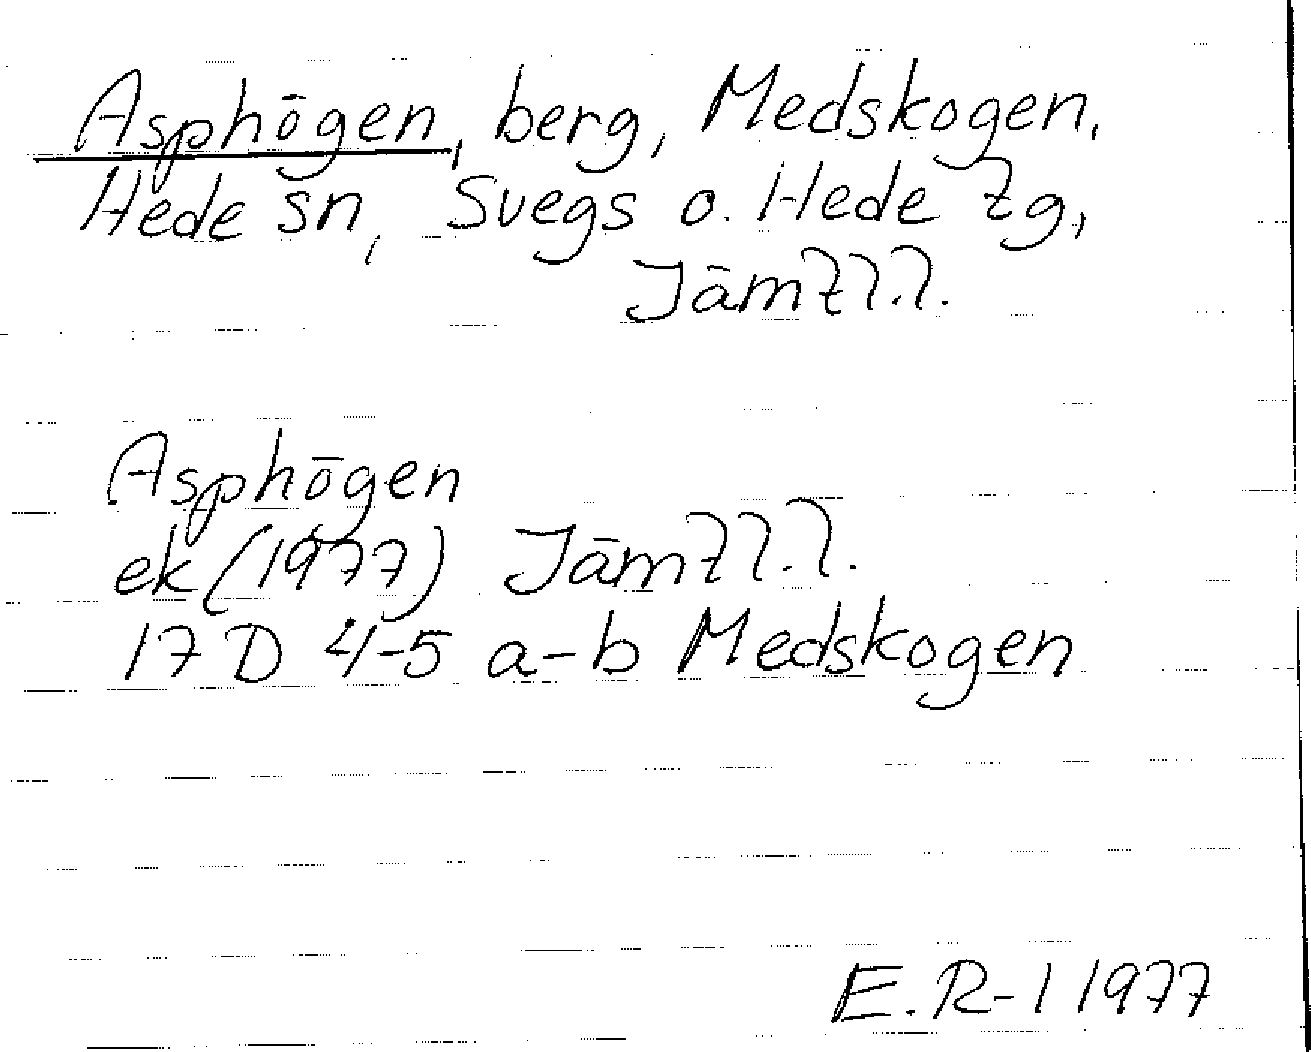 Asphögen, berg, Medskogen,
Hede sn, Svegs o. Hede tg,
Jämtl.l.
Asphögen
ek (1977) Jämtl.l.
17 D 4-5 a-b Medskogen
E.R-l 1977